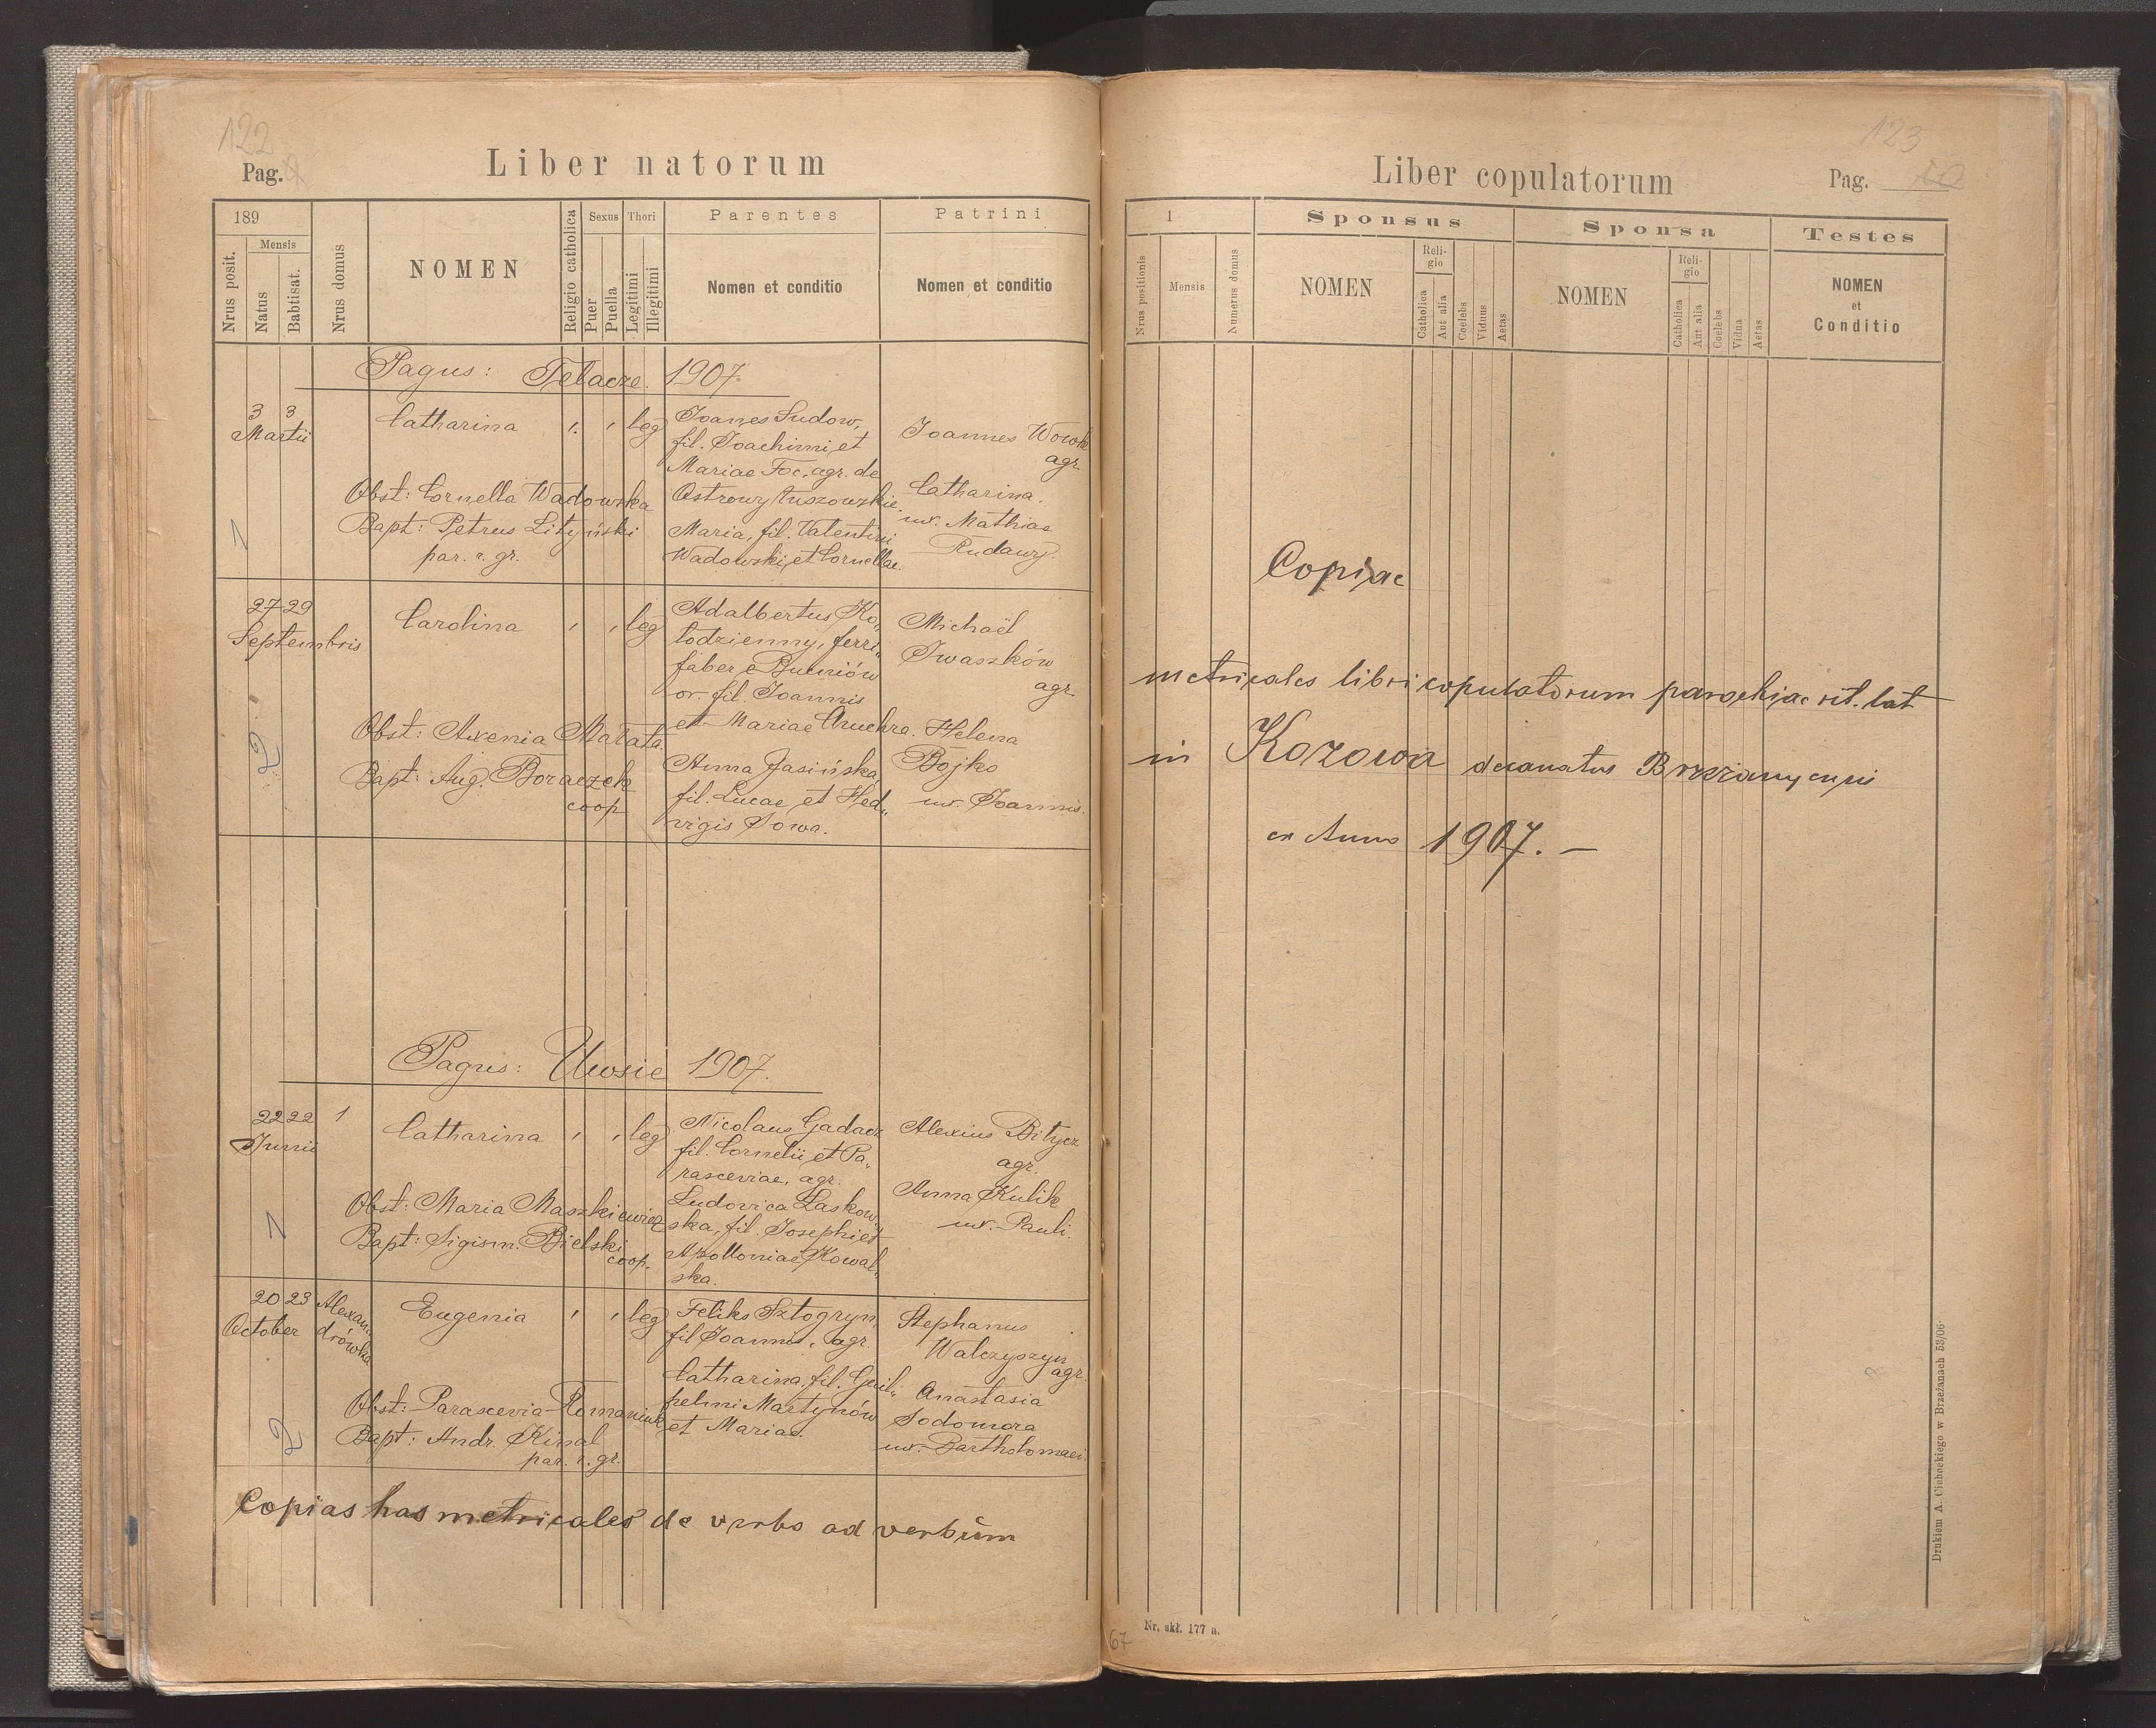 122
Pag.
Liber natorum
189
Nrus posit.
Mensis
Natus
Babtisat.
Nrus domus
NOMEN
Religio catholica
Sexus
Puer
Puella
Thori
Legitimi
Illegitimi
Parentes
Nomen et conditio
Patrini
Nomen et conditio
Pagus: Telacze. 1907.
3 3
Martii
Catharina
leg
Joannes Sudow,
fil. Joachimi, et
Mariae Foc. agr. de
Ostrowy tuszowskie.
Maria, fil. Valentini
Wadowski, et Cornellae.
Joannes Wowk
agr
Catharina.
ux. Mathiae
Rudawy.
Obst: Cornella Wadowska
Bapt: Petrus Lityński
par. r. gr.
1
27 29
Septembris
Carolina
leg
Adalbertus Ko„
łodzienny, ferri„
faber e
or. fil. Joannis
et Mariae
Anna Jasińska
fil. Lucae et Hed„
vigis Sowa.
Michaël
Iwaszków
agr
Helena
Bojko
ux. Joannis.
Obst: Axenia Małata.
Bapt: Aug. Boraczek
coop
2
Pagus: Uwsie 1907.
22 22
Junii
1
Catharina
leg
Nicolaus Gadacz
fil. Cornelii et Pa„
rasceviae, agr.
Ludovica Laskow„
ska, fil. Josephi et
Apolloniae Kowal„
ska.
Alexius Bitycz
agr.
Anna Kulik
ux. Pauli.
Obst: Maria Maszkiewicz
Bapt: Sigism. Bielski
coop.
1
20 23
October
Alexan„
drówka
Eugenia
leg
Feliks Sztogryn,
fil Joannis, agr.
Catharina, fil. Guil„
helmi Martynów
et Mariae.
Stephanus
Walczyszyn
agr.
Anastasia
Sodomora
ux. Bartholomaei.
Obst: Parascevia Romaniuk
Bapt: Andr. Kinal
par. r. gr.
2
Copias has metricales de verbo ad verbum
123
Liber copulatorum
Pag.
1
Nrus positionis
Mensis
Numerus domus
Sponsus
NOMEN
Reli-
gio
Catholica
Aut alia
Coelebs
Viduus
Aetas
Sponsa
NOMEN
Reli-
gio
Catholica
Aut alia
Coelebs
Vidua
Aetas
Testes
NOMEN
et
Conditio
Copiae
metricales libri copulatorum parochiae rit. lat
in Kozowa decanatus Brzezanyensis
ex Anno 1907. —
Drukiem A. Cichockiego w Brzeżanach 53/06.
Nr. skł. 177 a.
67